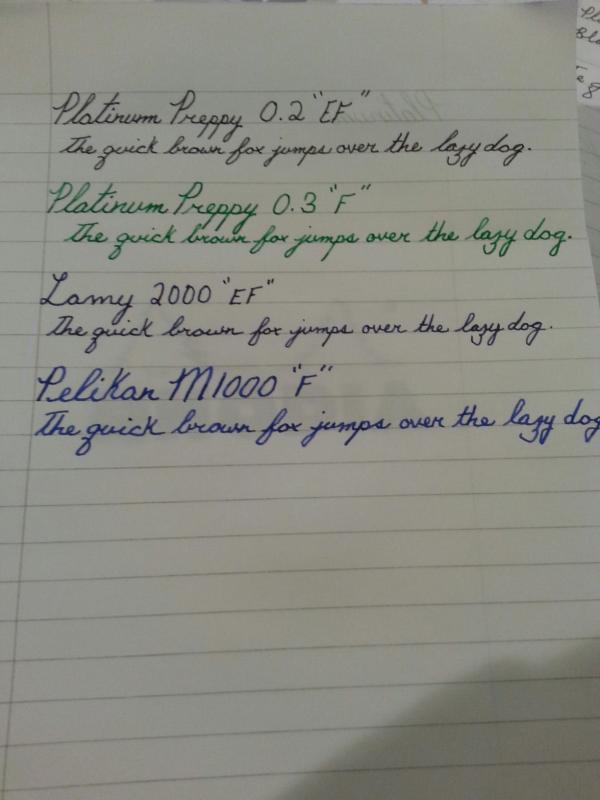 Platinum Preppy 0.2 "EF"
The quick brown fox jumps over the lazy dog.
Platinum Preppy 0.3 "F"
The quick brown fox jumps over the lazy dog.
Lamy 2000 "EF"
The quick brown fox jumps over the lazy dog.
Pelikan M1000 "F"
The quick brown fox jumps over the lazy dog